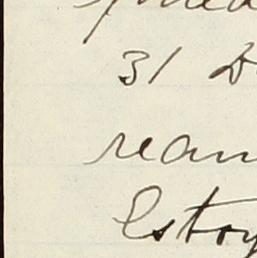 31 D
rean
Estoy